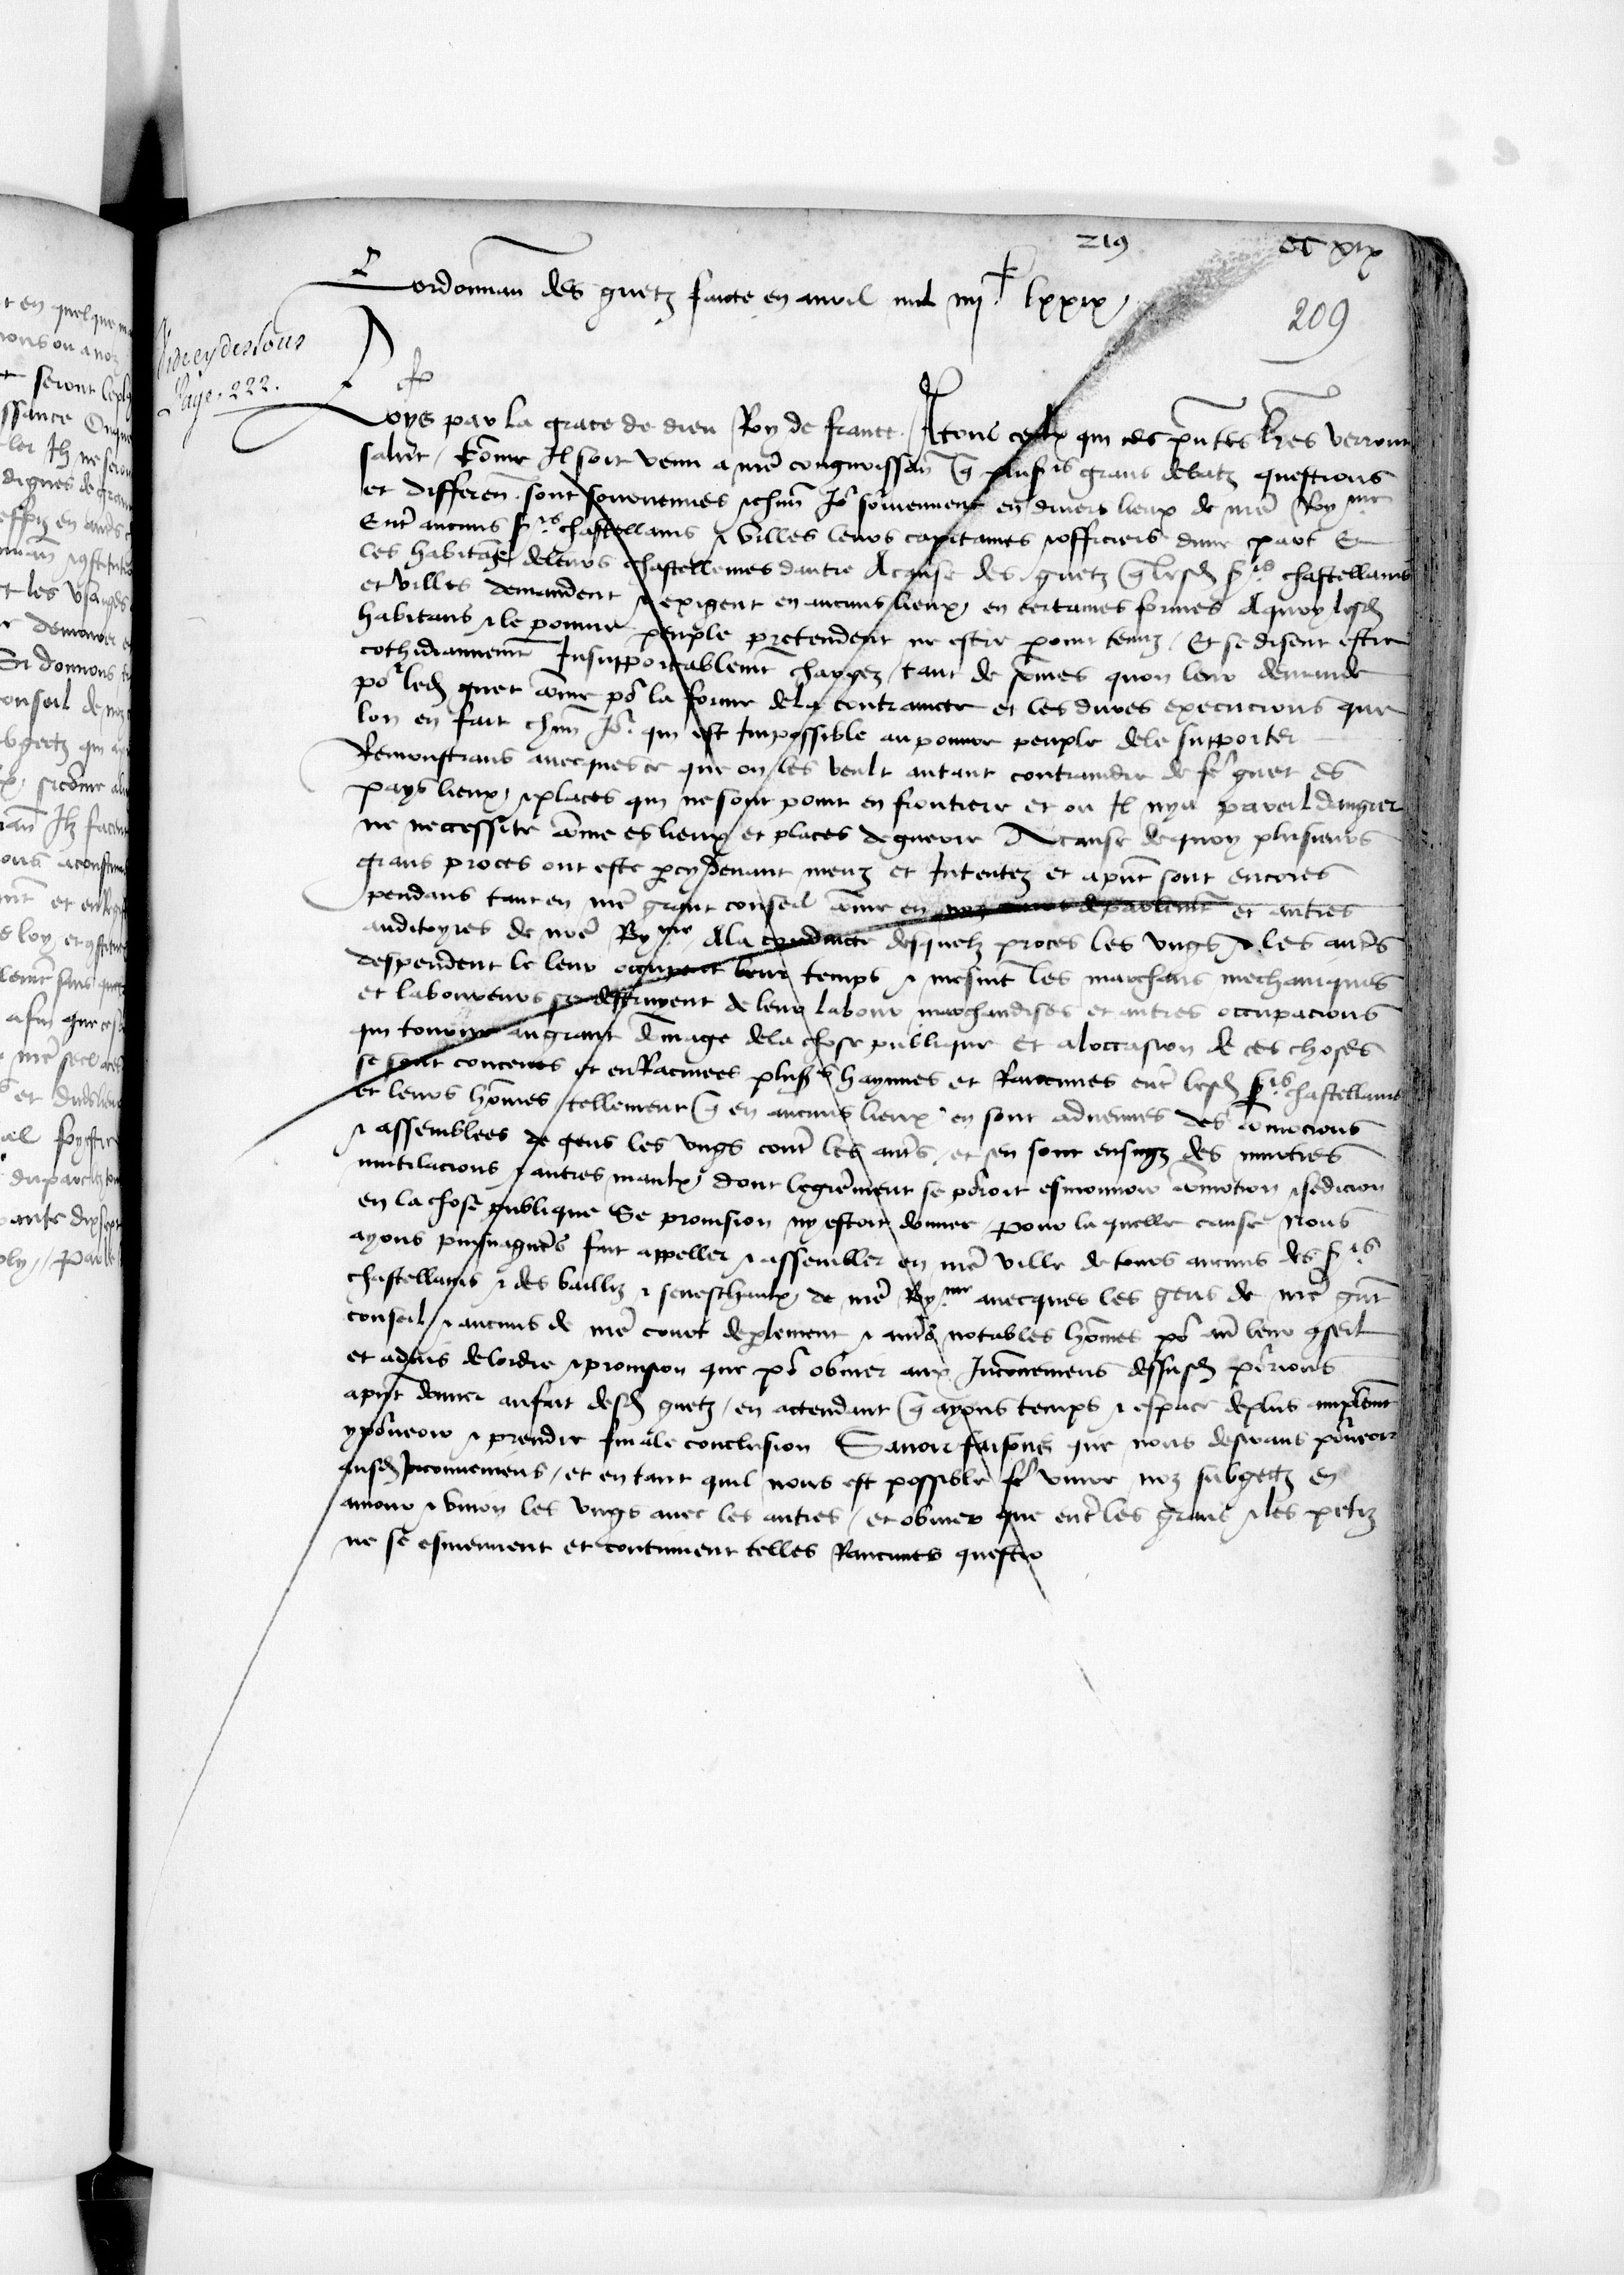 219
CC XIX
209
Lordonnan des guetz faicte en avril mil iiijc lxxix
Videcy dessous
Page. 222.
Loys par la grace de dieu Roy de france Atous ceulx qui ces pntes lres verront
salut / Come Il soit venu a nre congnoissan q plusrs grans debatz questions
et differen sont sourvenues & chun Jor sourviennent en divers lieux de nre Royme
Entre aucuns srs chastellains & villes leurs capitaines & officiers dune part Et
les habitans deleurs chastellenies dautre Acause des guetz q lesd srs chastellains
et villes demandent & exigent en aucuns lieux, en certaines formes Aquoy lesd
habitans & le povure peuple pretendent ne estre point tenuz / Et se disent estre
cothidiannemt Insupportablemt chargez / tant de somes quon leur demande
por led guet come por la forme dela contraincte et les dures execucions que
lon en fait chun Jor qui est Impossible au povure peuple dele supporter
Remonstrans avecquesce que on les veult autant contraindre de fe guet es
pays lieux, & places qui ne sont point en frontiere et ou Il nya pareil dangier
ne necessite come es lieux et places deguerre Acause dequoy plusieurs
grans proces ont este pcy devant meuz et Intentez et apnt sont encores
pendans tant en nre grant conseil come en noz cours deparlemt et autres
auditoyres de nore Royme Ala conduicte desquelz proces les ungs & les autrs
despendent le leur occupent leur temps & mesmt les marchans mechaniques
et laboureurs se destruyent de leur labour marchandises et autres occupacions
qui tourne augrant domage dela chose publique Et aloccasion de ces choses
se sont conceues et enRacinees plusrs haynnes et Rancunes entre lesd srs chastellains
et leurs homes / tellement q en aucuns lieux en sont advenues des comocions
& assemblees de gens les ungs contre les autrs / et sen sont ensuyz des murtres
mutilacions & autres maulx, dont legierement se porroit esmouvoir comotion & sedicion
en la chose publique Se provision ny estoit donnee / pour la quelle cause Nous
ayons puisnagueres fait appeller & assembler en nre ville de tours aucuns des srs
chastellains & des bailliz & seneschaulx, de nre Royme avecques les gens de nre grnt
conseil / & aucuns de nre court deplement & autrs notables homes por avr leur cseil
et advis delordre & provision que por obvier aux Inconveniens dessusd porrions
apnt donner aufait desd guetz / en actendant q ayons temps & espace deplus amplemt
y porveoir & prendre finale conclusion Savoir faisons que nous desirans porveoir
ausd Inconveniens / et en tant quil nous est possible fe vivre noz subgectz en
amour & union les ungs avec les autres / et obvier que entre les grans & les petiz
ne se esmeuvent et continuent telles Rancunes questio